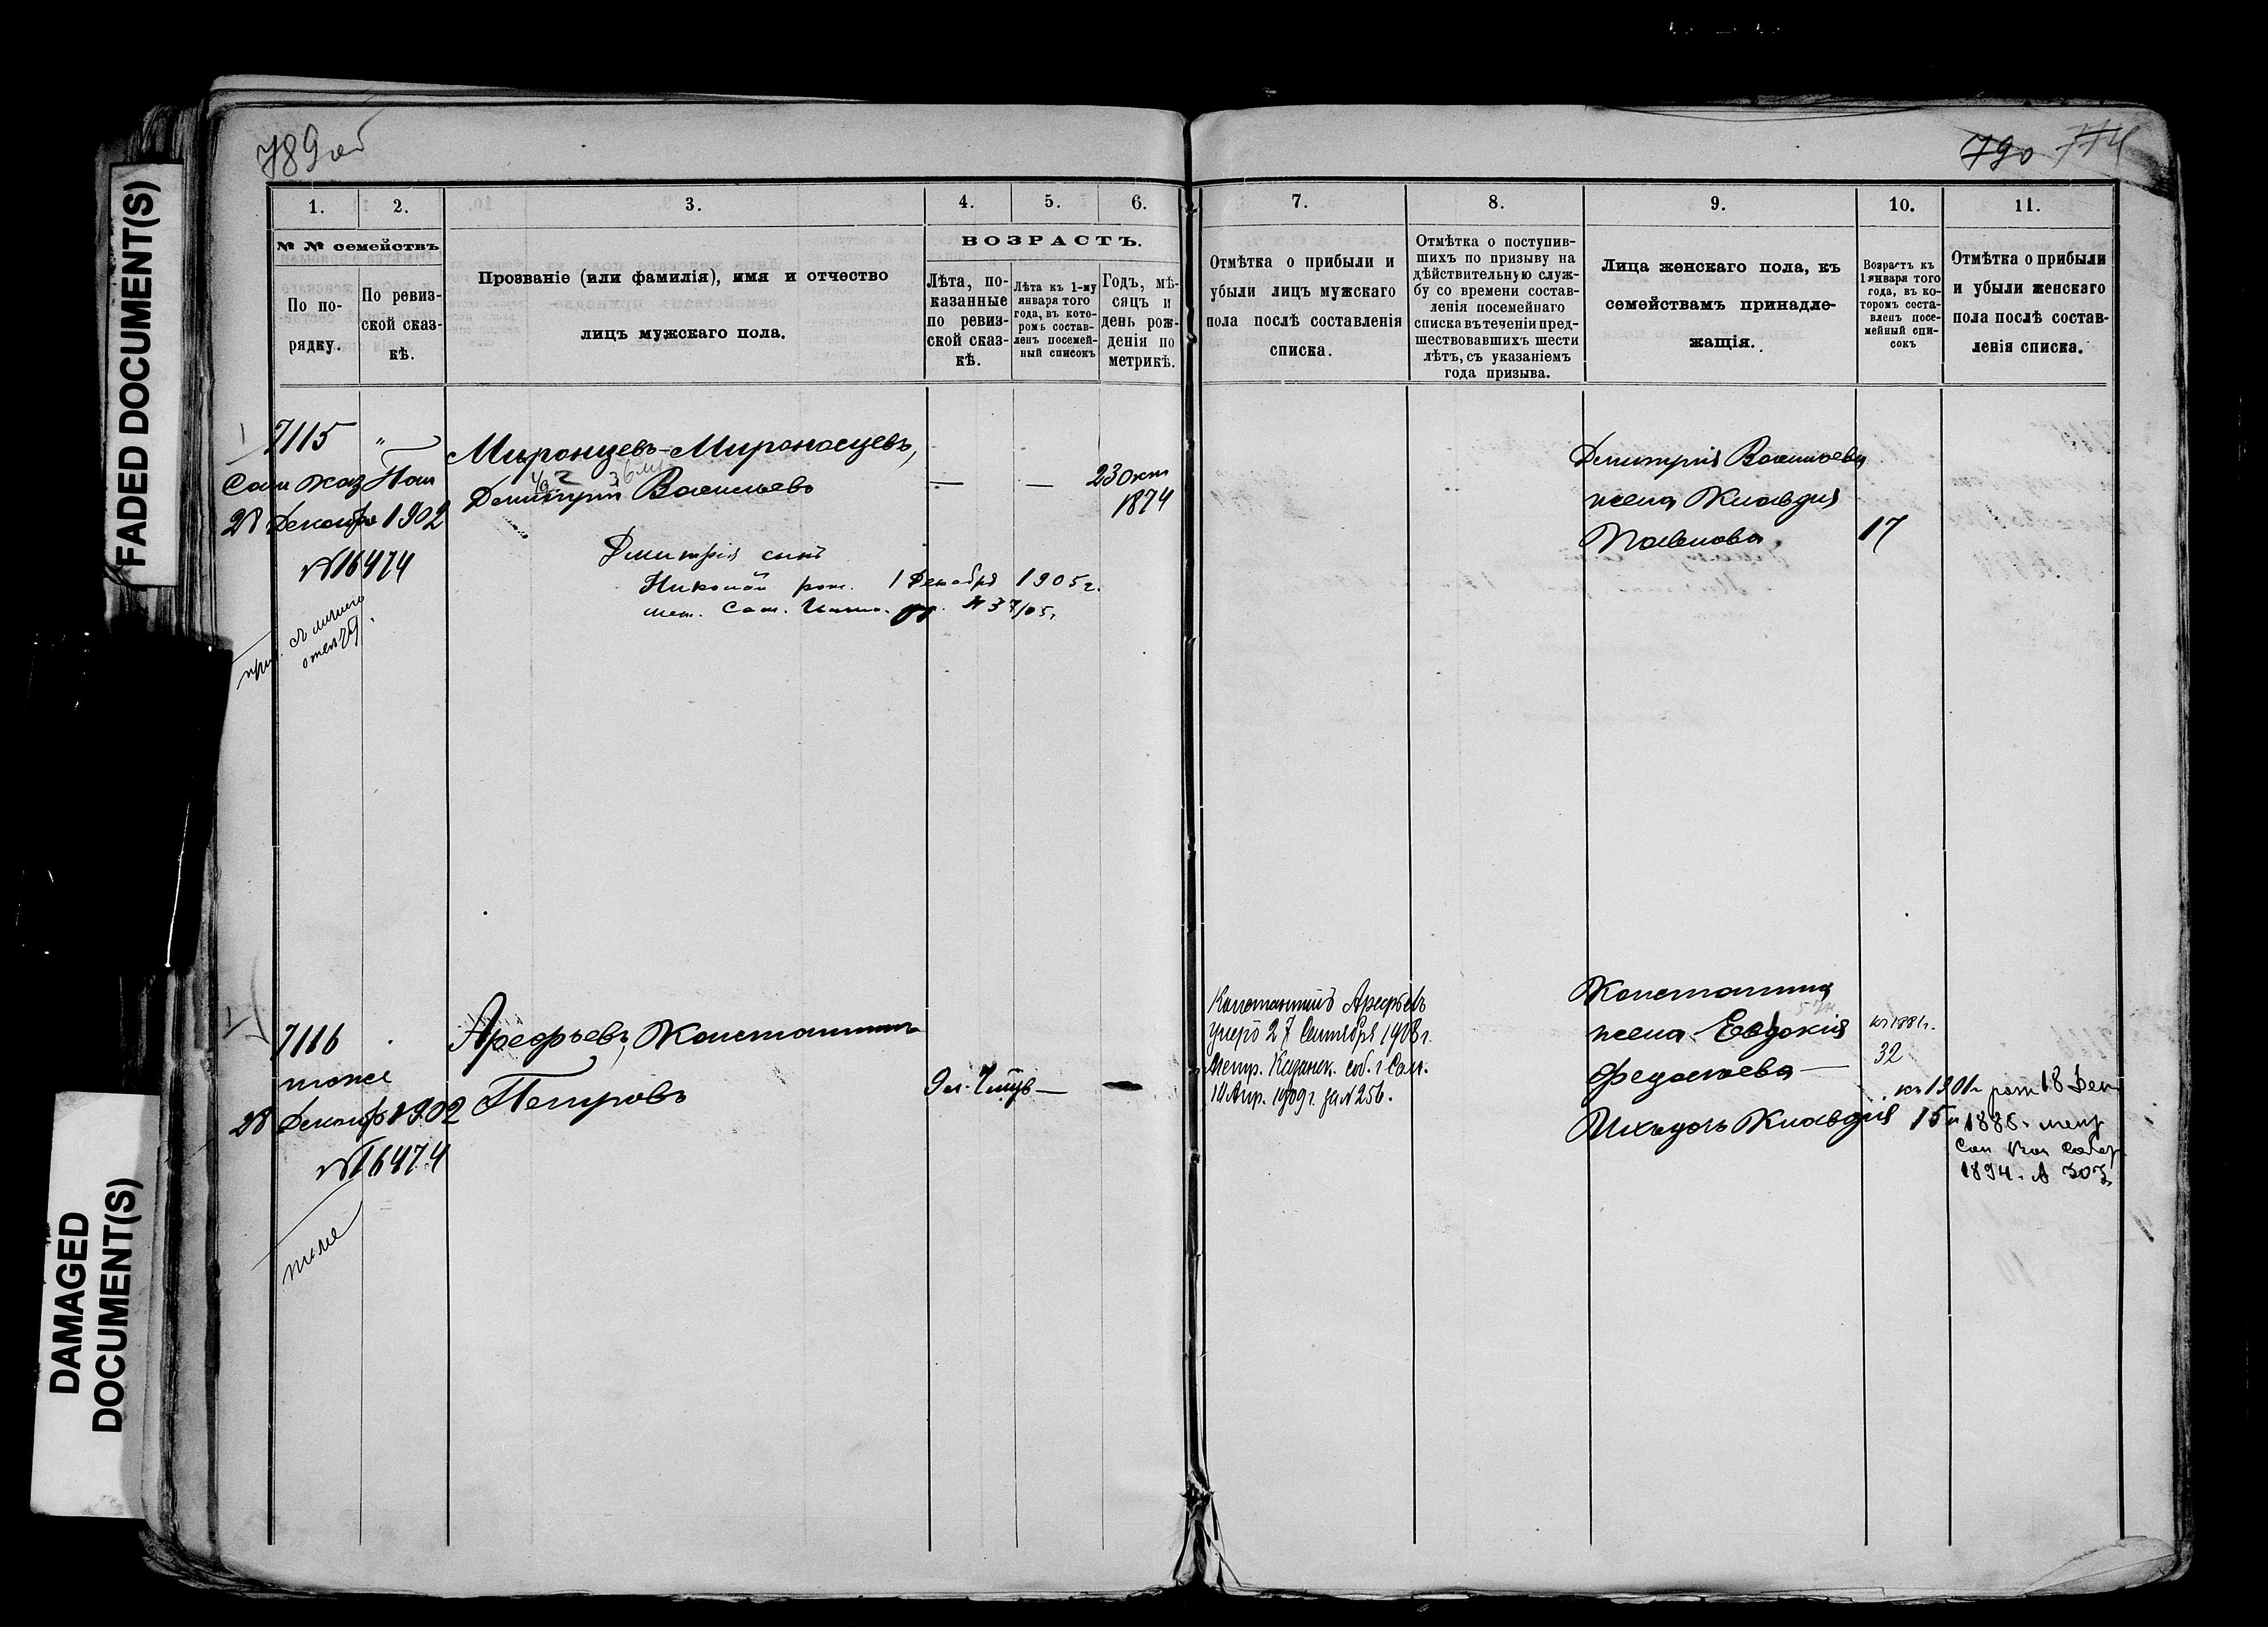 789 об
790 774
FADED DOCUMENT(S)
DAMAGED
DOCUMENT(S)
1. 2. 3. 4. 5. 6. 7. 8. 9. 10. 11.
№ № семействъ
По по-
рядку.
По ревиз-
ской сказ-
кѣ.
Прозваніе (или фамилія), имя и отчество
лицъ мужскаго пола.
ВОЗРАСТЪ.
Лѣта, по-
казанные
по ревиз-
ской сказ-
кѣ.
Лѣта къ 1-му
января того
года, въ кото-
ромъ состав-
ленъ посемей-
ный списокъ
Годъ, мѣ-
сяцъ и
день рож-
денія по
метрикѣ.
Отмѣтка о прибыли и
убыли лицъ мужскаго
пола послѣ составленія
списка.
Отмѣтка о поступив-
шихъ по призыву на
дѣйствительную служ-
бу со времени состав-
ленія посемейнаго
списка въ теченіи пред-
шествовавшихъ шести
лѣтъ, съ указаніемъ
года призыва.
Лица женскаго пола, къ
семействамъ принадле-
жащія.
Возрастъ къ
1 января того
года, въ ко-
торомъ соста-
вленъ посе-
мейный спи-
сокъ
Отмѣтка о прибыли
и убыли женскаго
пола послѣ состав-
ленія списка.
1
7115 "
Сам Каз Пал
28 Декабря 1902
№16474
Миронцевъ-Мироносцевъ,
Дмитрій Васильевъ
— —
23 окт
1874
Дмитрія сынъ
Николай рож. 1 Декабря 1905 г.
мет. Сам. №37/05.
Дмитрія Васильева
жена Клавдія
Павлова 17
7116
тоже
28 Декабря 1902
№16474
тоже
Арефьевъ, Константинъ
Петровъ
9 л. 7 мцв — —
Константинъ Арефьевъ
умеръ 27 Сентября 1908 г.
Метр. Казанск. соб. г Сам.
14 Апр. 1909 г. за №256.
Константина
жена Евдокія
Федотова —
къ 1881 г.
32
Ихъ дочь Клавдія 15 л
къ 1901 г рож 18 Дек
1886 г. метр
Сам Каз Собор
1894 г. № 303